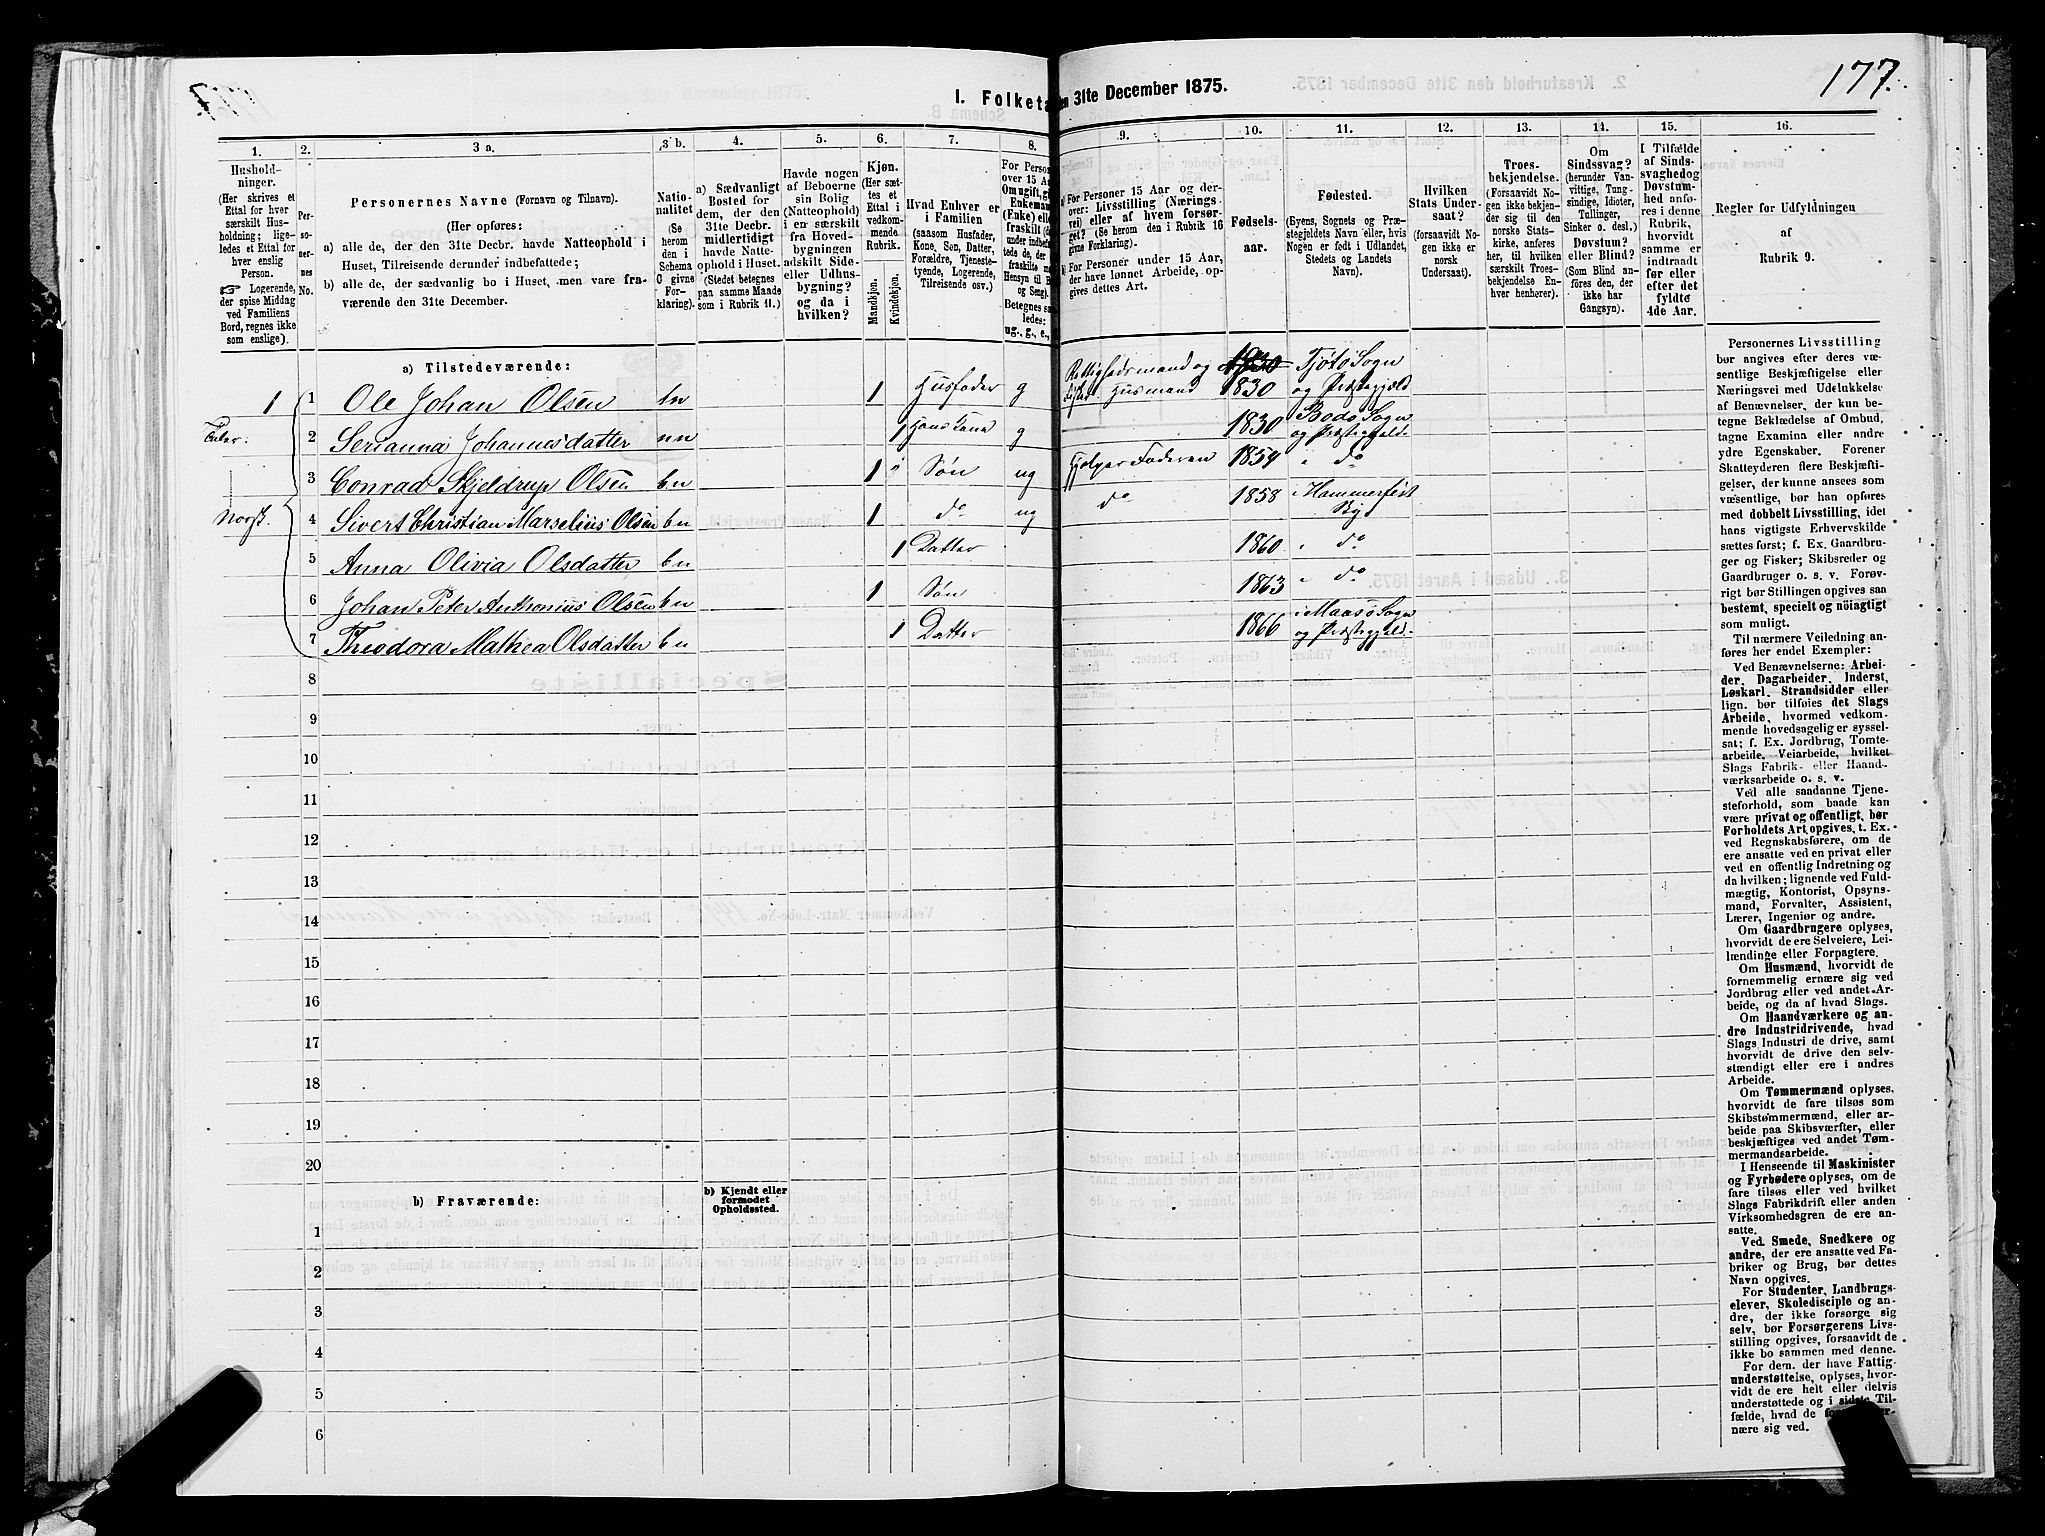 7
177.
I. Folketa
en 31te December 1875.
1.
2.
3 a.
3 b.
4.
5.
6.
7.
8.
9.
10.
11.
12.
13.
14.
15.
16.
Hushold-
ninger.
(Her skrives et
Ettal for hver
særskilt Hus-
holdning; lige-
ledes et Ettal for
hver enslig
Person.
☞ Logerende,
der spise Middag
ved Familiens
Bord, regnes ikke
som enslige).
Per-
so-
ner-
nes
No.
Personernes Navne (Fornavn og Tilnavn).
(Her opføres:
a) alle de, der den 31te Decbr. havde Natteophold i
Huset, Tilreisende derunder indbefattede;
b) alle de, der sædvanlig bo i Huset, men vare fra-
værende den 31te December.
Natio-
nalitet
(Se
herom
den i
Schema
C givne
For-
klaring).
a) Sædvanligt
Bosted for
dem, der den
31te Decbr.
midlertidigt
havde Natte-
ophold i Huset.
(Stedet betegnes
paa samme Maade
som i Rubrik 11.)
Havde nogen
af Beboerne
sin Bolig
(Natteophold)
i en særskilt
fra Hoved-
bygningen
adskilt Side-
eller Udhus-
bygning?
og da i
hvilken?
Kjøn.
(Her sæt-
tes et
Ettal i
vedkom-
mende
Rubrik.
Mandkjøn.
Kvindekjøn.
Hvad Enhver er
i Familien
(saasom Husfader,
Kone, Søn, Datter,
Forældre, Tjeneste-
tyende, Logerende,
Tilreisende osv.)
For Person
over 15 Aa
Om ugift, gi
Enkemand
(Enke) elle
fraskilt (de
under indbefa
tede de, der
fraskilte m
Hensyn til B
og Seng).
Betegnes sa
ledes:
ug., g., e.,
a) For Personer 15 Aar og der-
over: Livsstilling (Nærings-
vei) eller af hvem forsør-
get? (Se herom den i Rubrik 16
givne Forklaring).
b) For Personer under 15 Aar,
der have lønnet Arbeide, op-
gives dettes Art.
Fødsels-
aar.
Fødested.
(Byens, Sognets og Præ-
stegjeldets Navn eller, hvis
Nogen er født i Udlandet,
Stedets og Landets
Navn).
Hvilken
Stats Under-
saat?
(forsaavidt No-
gen ikke er
norsk
Undersaat).
Troes-
bekjendelse.
(Forsaavidt No-
gen ikke bekjen-
der sig til den
norske Stats-
kirke, anføres
her, til hvilken
særskilt Troes-
bekjendelse En-
hver henhører).
Om
Sindssvag?
(herunder Van-
vittige, Tung-
sindige, Idioter,
Tullinger,
Sinker o. desl.)
Døvstum?
eller Blind?
(Som Blind an-
føres den, der
ikke har
Gangsyn).
I Tilfælde
af Sinds-
svaghed og
Døvstum-
hed anfø-
res i denne
Rubrik,
hvorvidt
samme er
indtraadt
før eller
efter det
fyldte
4de Aar.
Regler for Udfyldningen
af
Rubrik 9.
a) Tilstedeværende:
1 1 Ole Johan Olsen bn 1 Husfader g Rettighedsmand og Husmand 1830 1830 Tjøtø Sogn og Præstegjæld
2 Serianna Johannesdatter nn 1 Hans Kone g 1830 Bodø Sogn og Præstegjæld.
3 Conrad Skjeldrup Olsen bn 1 " Søn ug hjelper Faderen 1854 " do
4 Sivert Christian Marselius Olsen bn 1 do ug do 1858 i Hammerfest By
5 Anna Olivia Olsdatter bn 1 Datter 1860 " do
6 Johan Peter Anthonius Olsen bn 1 Søn 1863 " do
7 Theodora Mathea Olsdatter bn 1 Datter 1866 i Maasø Sogn og Præstegjæld.
Norsk.
8
9
10
11
12
13
14
15
16
17
18
19
20
b) Fraværende:
b) Kjendt eller
formodet
Opholdssted.
1
2
3
4
5
6
Personernes Livsstilling
bør angives efter deres væ-
sentlige Beskjæftigelse eller
Næringsvei med Udelukkelse
af Benævnelser, der kun be-
tegne Beklædelse af Ombud,
tagne Examina eller andre
ydre Egenskaber. Forener
Skatteyderen flere Beskjæfti-
gelser, der kunne ansees som
væsentlige, bør han opføres
med dobbelt Livsstilling, idet
hans vigtigste Erhvervskilde
sættes først; f. Ex. Gaardbru-
ger og Fisker; Skibsreder og
Gaardbruger o. s. v. Forøv-
rigt bør Stillingen opgives saa
bestemt, specielt og nöiagtigt
som muligt.
Til nærmere Veiledning an-
føres her endel Exempler:
Ved Benævnelserne: Arbei-
der, Dagarbeider, Inderst,
Løskarl, Strandsidder eller
lign. bør tilføies det Slags
Arbeide, hvormed vedkom-
mende hovedsagelig er syssel-
sat; f. Ex. Jordbrug, Tomte-
arbeide, Veiarbeide, hvilket
Slags Fabrik- eller Haand-
værksarbeide o. s. v.
Ved alle saadanne Tjene-
steforhold, som baade kan
være privat og offentligt, bør
Forholdets Art opgives, t. Ex.
ved Regnskabsførere, om de
ere ansatte ved en privat eller
ved en offentlig Indretning og
da hvilken; lignende ved Fuld-
mægtig, Kontorist, Opsyns-
mand, Forvalter, Assistent,
Lærer, Ingeniør og andre.
Om Gaardbrugere oplyses,
hvorvidt de ere Selveiere, Lei-
lændinge eller Forpagtere.
Om Husmænd, hvorvidt de
fornemmelig ernære sig ved
Jordbrug eller ved andet Ar-
beide, og da af hvad Slags.
Om Haandværkere og an-
dre Industridrivende, hvad
Slags Industri de drive, samt
hvorvidt de drive den selv-
stændigt eller ere i andres
Arbeide.
Om Tømmermænd oplyses,
hvorvidt de fare tilsøs som
Skibstømmermænd, eller ar-
beide paa Skibsværfter, eller
beskjæftiges ved andet Tøm-
mermandsarbeide.
I Henseende til Maskinister
og Fyrbødere oplyses, om de
fare tilsøs eller ved hvilket
Slags Fabrikdrift eller anden
Virksomhedsgren de ere an-
satte.
Ved Smede, Snedkere og
andre, der ere ansatte ved Fa-
briker og Brug, bør dettes
Navn opgives.
For Studenter, Landbrugs-
elever, Skoledisciple og an-
dre, der ikke forsørge sig
selv, bør Forsørgerens Livs-
stilling opgives, forsaavidt de
ikke bo sammen med denne.
For dem, der have Fattig-
understøttelse, oplyses, hvor-
vidt de ere helt eller delvis
understøttede og i sidste Til-
fælde, hvad de for
nære sig ved.